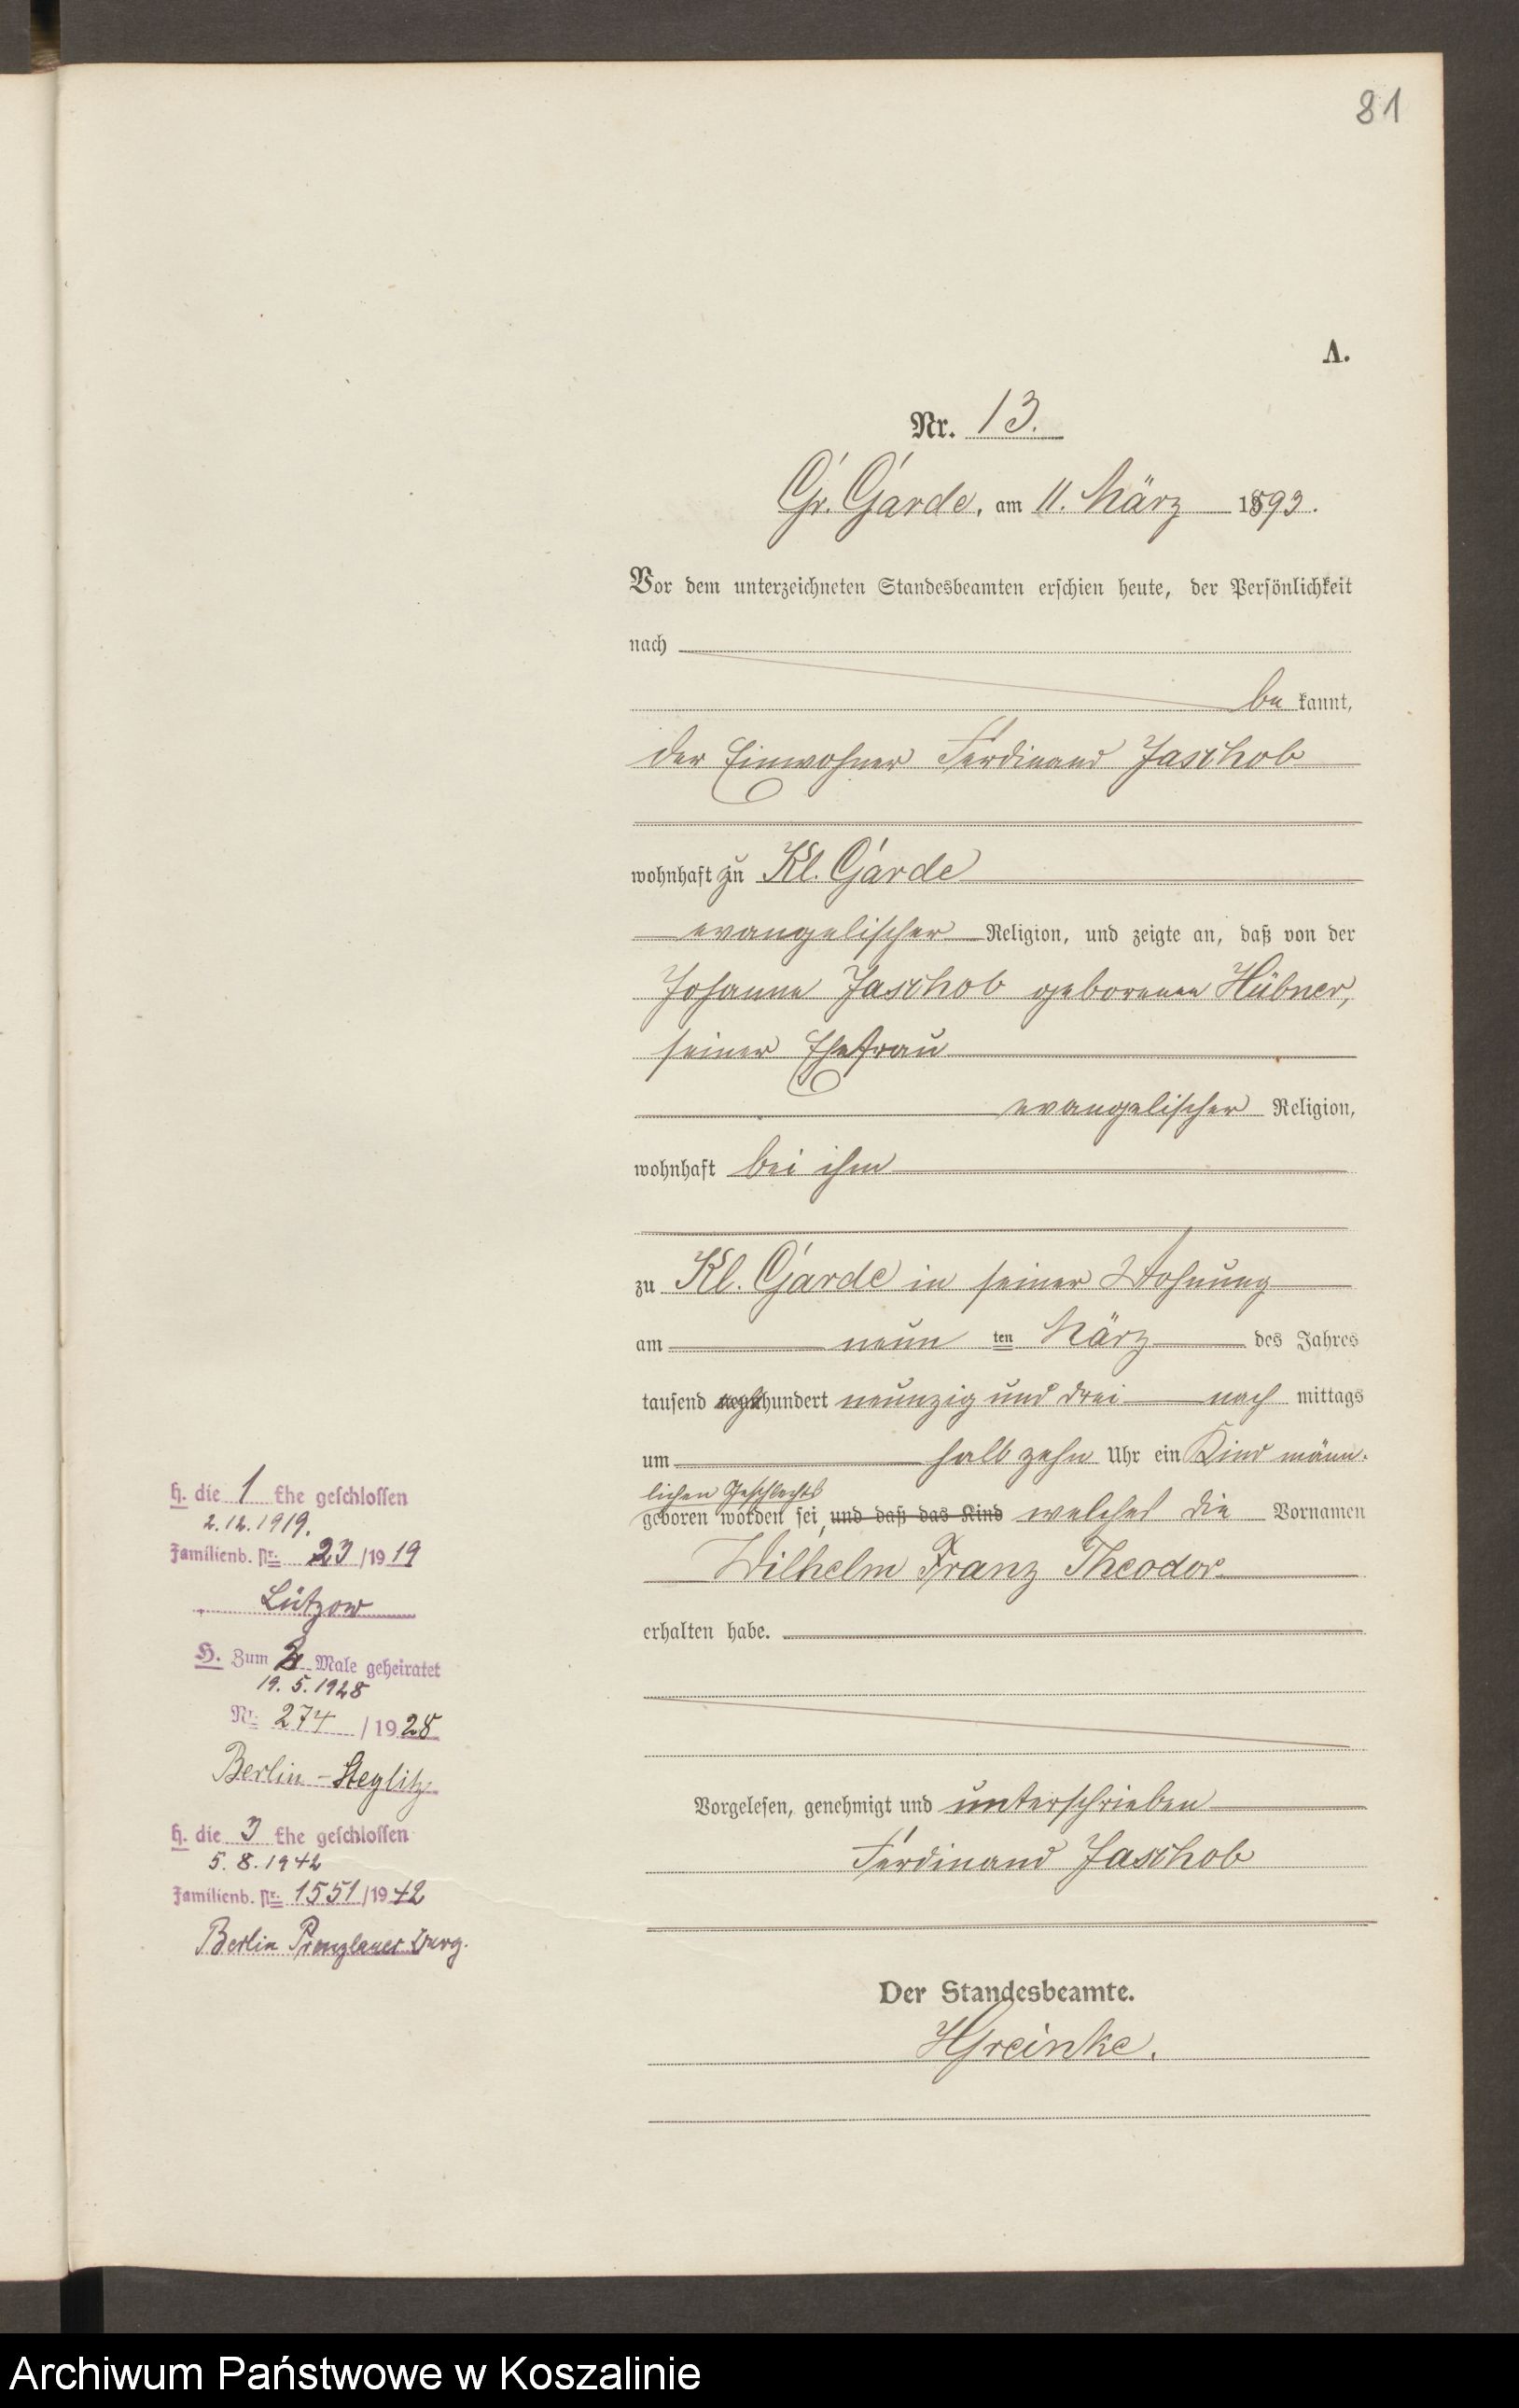 81
A.
Nr. 13.
Gr. Garde, am 11. März 1893.
Vor dem unterzeichneten Standesbeamten erschien heute, der Persönlichkeit
nach
be kannt,
der Einwohner Ferdinand Jaschob
wohnhaft zu Kl. Garde
evangelischer Religion, und zeigte an, daß von der
Johanne Jaschob geborenen Hübner,
seiner Ehefrau
evangelischer Religion,
wohnhaft bei ihm
zu Kl. Garde in seiner Wohnung
am neun ten März des Jahres
tausend achthundert neunzig und drei nach mittags
um halb zehn Uhr ein Kind männ-
lichen Geschlechts
geboren worden sei, und daß das Kind welches die Vornamen
Wilhelm Franz Theodor
erhalten habe.
Vorgelesen, genehmigt und unterschrieben
Ferdinand Jaschob
Der Standesbeamte.
HGreinke.
H. die 1 Ehe geschlossen
2.12.1919.
Familienb. Nr. 23/1919
Lützow
H. Zum 2 Male geheiratet
19.5.1928
Nr. 274/1928
Berlin-Steglitz
H. die 3 Ehe geschlossen
5.8.1942
Familienb. Nr. 1551/1942
Berlin Prenzlauer Berg.
Archiwum Państwowe w Koszalinie